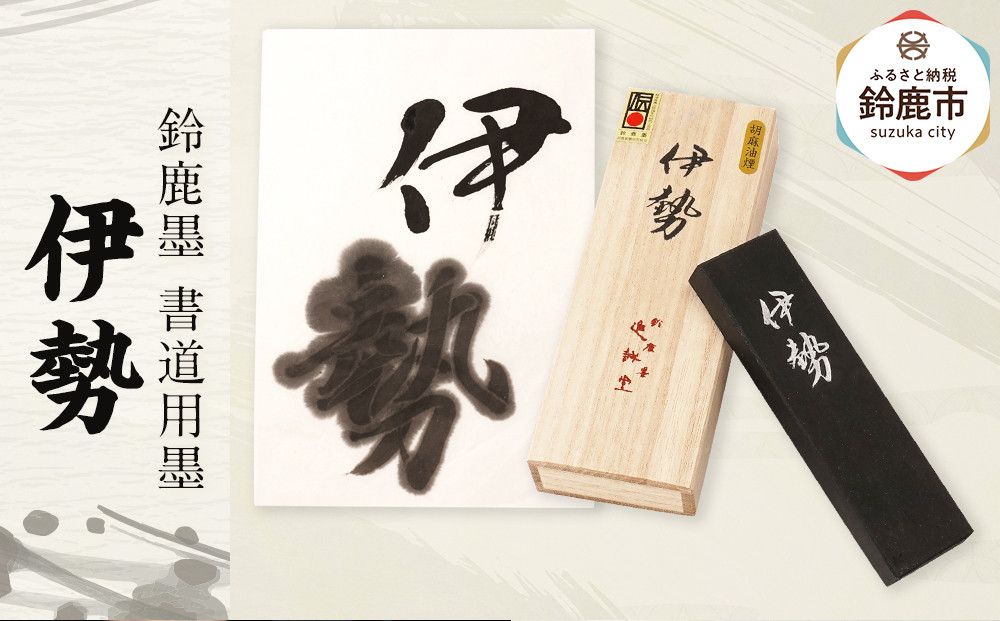 鈴鹿墨 書道用墨
伊勢
伊勢
伝
鈴鹿墨
胡麻油煙
伊勢
鈴鹿墨
進誠堂
伊勢
ふるさと納税
鈴鹿市
suzuka city